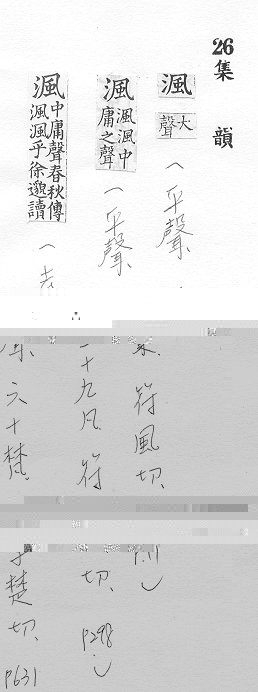 26集韻
渢 大聲 (平聲、
東、符風切、
P.11)
渢 渢渢中庸之聲 (平聲、
二十九凡、符
切、P298.)
渢 中庸聲春秋傳渢渢乎徐邈讀 (去
聲、六十梵、
孚梵切、P631